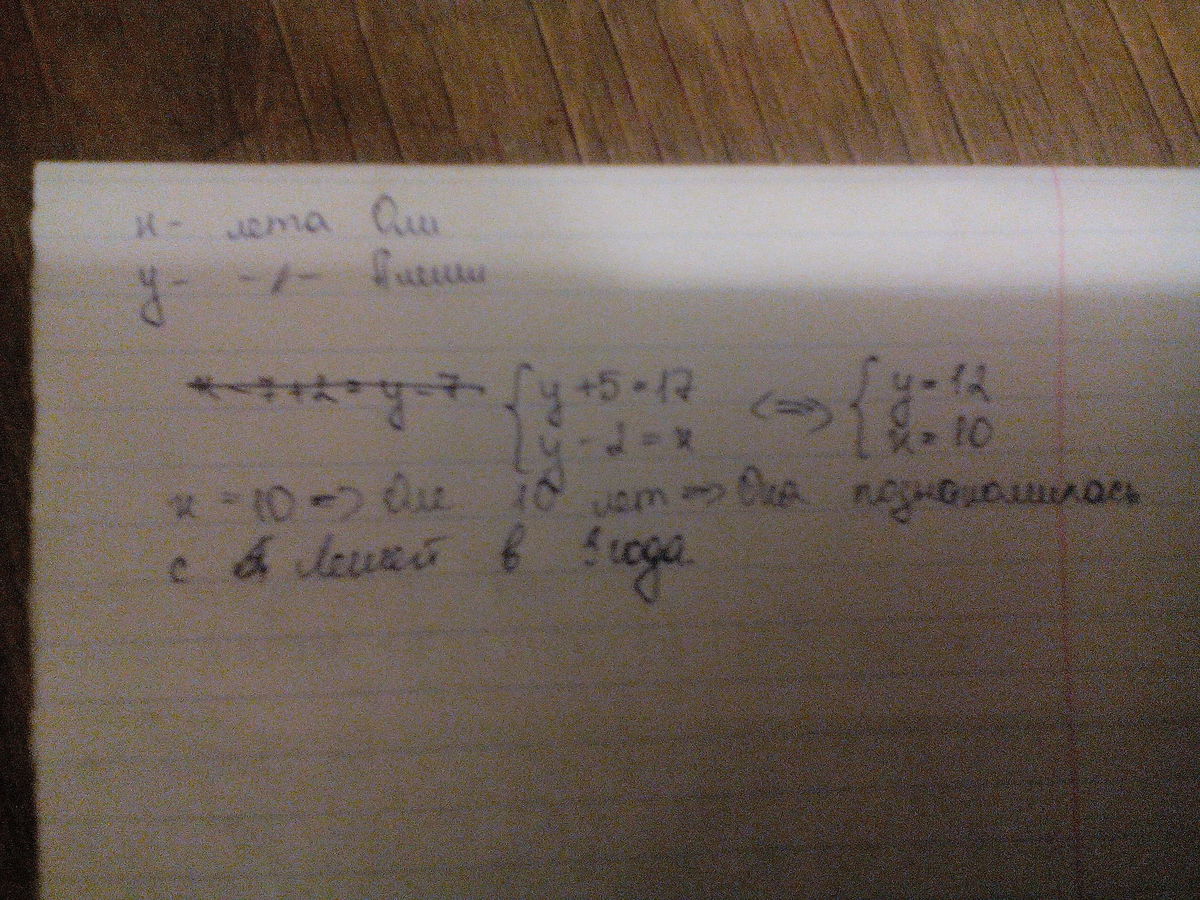 x - лета Оли
y - -//- Алёши
x - 7 + 2 = y - 7 { y + 5 = 17 <=> { y = 12
y - 2 = x x = 10
x = 10 => Оле 10 лет => Оля познакомилась
с Лёшей в 3 года.